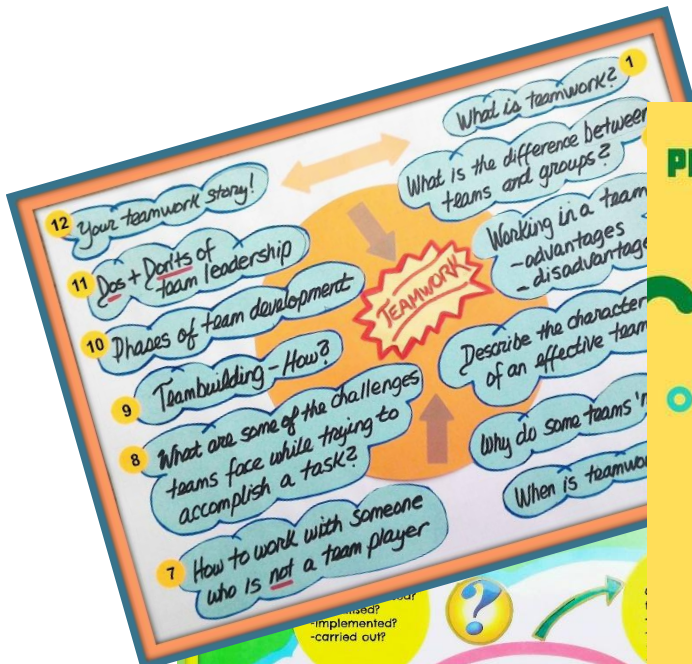 1
What is teamwork?
What is the difference between
teams and groups?
Working in a team
-advantages
-disadvantage
Describe the character
of an effective team
Why do some teams
When is teamwo
TEAMWORK
12
Your teamwork story!
11
Dos + Don'ts of
team leadership
10
Phases of team development
9
Teambuilding - How?
8
What are some of the challenges
teams face while trying to
accomplish a task?
7
How to work with someone
who is not a team player
-implemented?
-carried out?